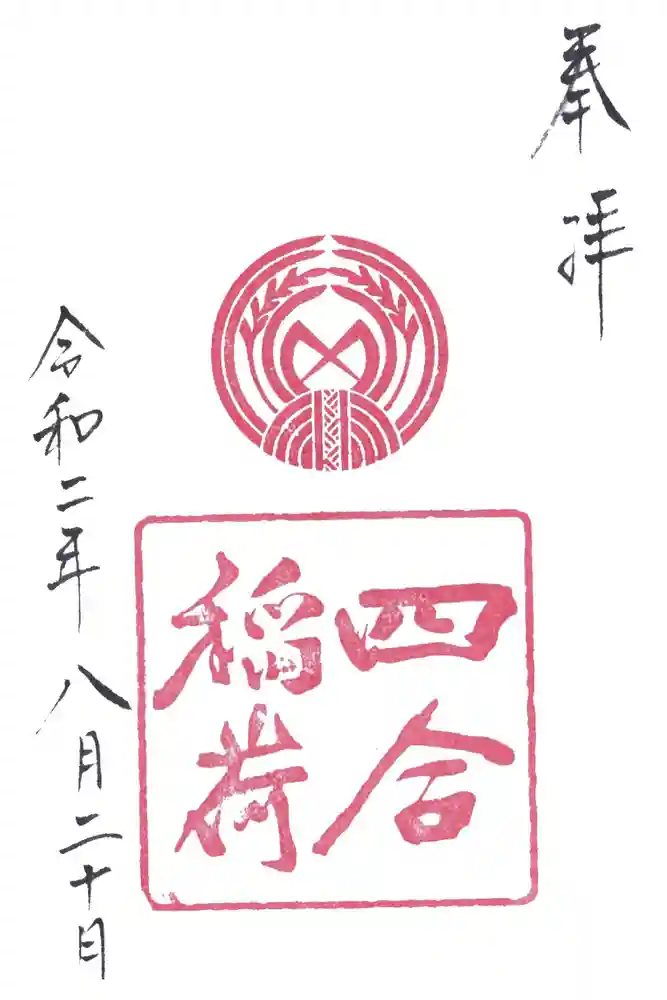 奉拝
四合
稲荷
令和二年八月二十日